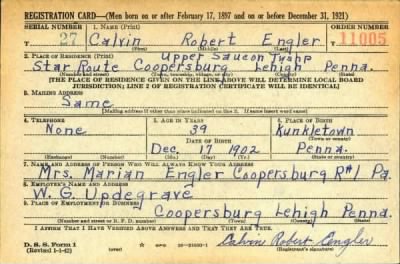 REGISTRATION CARD—(Men born on or after February 17, 1897 and on or before December 31, 1921)
SERIAL NUMBER 1. NAME (Print) ORDER NUMBER
T 27 Calvin Robert Engler 11005
(First) (Middle) (Last)
2. PLACE OF RESIDENCE (Print) Upper Saucon Twshp
Star Route Coopersburg Lehigh Penna.
(Number and street) (Town, township, village, or city) (County) (State)
[THE PLACE OF RESIDENCE GIVEN ON THE LINE ABOVE WILL DETERMINE LOCAL BOARD
JURISDICTION; LINE 2 OF REGISTRATION CERTIFICATE WILL BE IDENTICAL]
3. MAILING ADDRESS
Same
[Mailing address if other than place indicated on line 2. If same insert word same]
4. TELEPHONE 5. AGE IN YEARS 6. PLACE OF BIRTH
None 39 Kunkletown
DATE OF BIRTH (Town or county)
Dec. 17 1902 Penna.
(Exchange) (Number) (Mo.) (Day) (Yr.) (State or country)
7. NAME AND ADDRESS OF PERSON WHO WILL ALWAYS KNOW YOUR ADDRESS
Mrs. Marian Engler Coopersburg R#1 Pa.
8. EMPLOYER'S NAME AND ADDRESS
W. G. Updegrave
9. PLACE OF EMPLOYMENT OR BUSINESS
Coopersburg Lehigh Penna.
(Number and street or R. F. D. number) (Town) (County) (State)
I AFFIRM THAT I HAVE VERIFIED ABOVE ANSWERS AND THAT THEY ARE TRUE.
D. S. S. Form 1
(Revised 1-1-42) (over) GPO Calvin Robert Engler
(Registrant's signature)